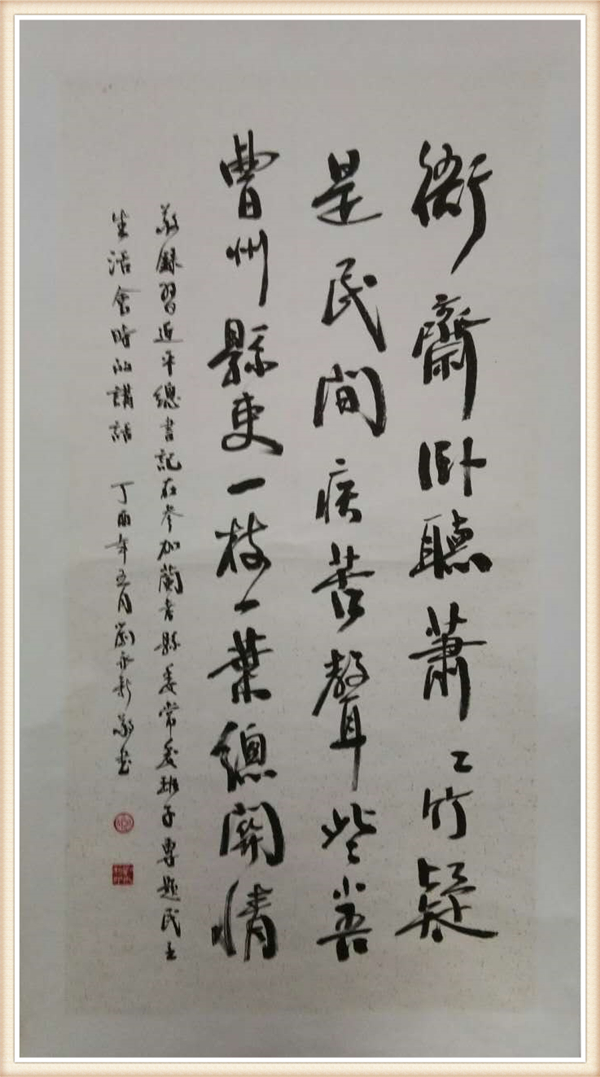 衙齋卧聽蕭〻竹疑
是民間疾苦聲些小吾
曹州縣吏一枝一葉總關情
敬録習近平總書記在參加蘭考縣委常委班子專題民主
生活會時的講話 丁酉年五月劉永敬書